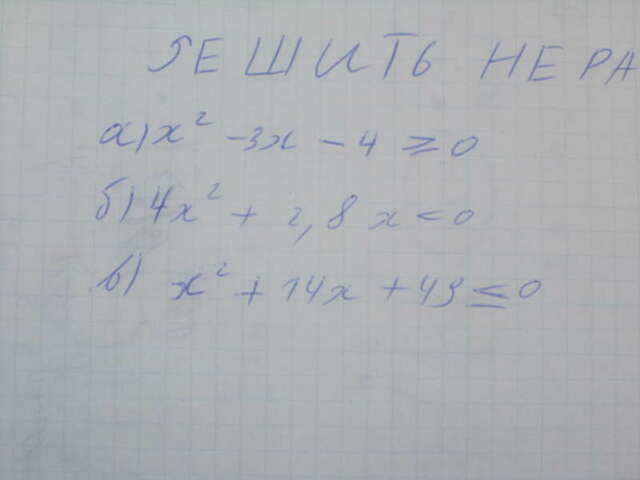 РЕШИТЬ НЕРА
а) x² - 3x - 4 ≥ 0
б) 4x² + 2,8x < 0
в) x² + 14x + 49 ≤ 0